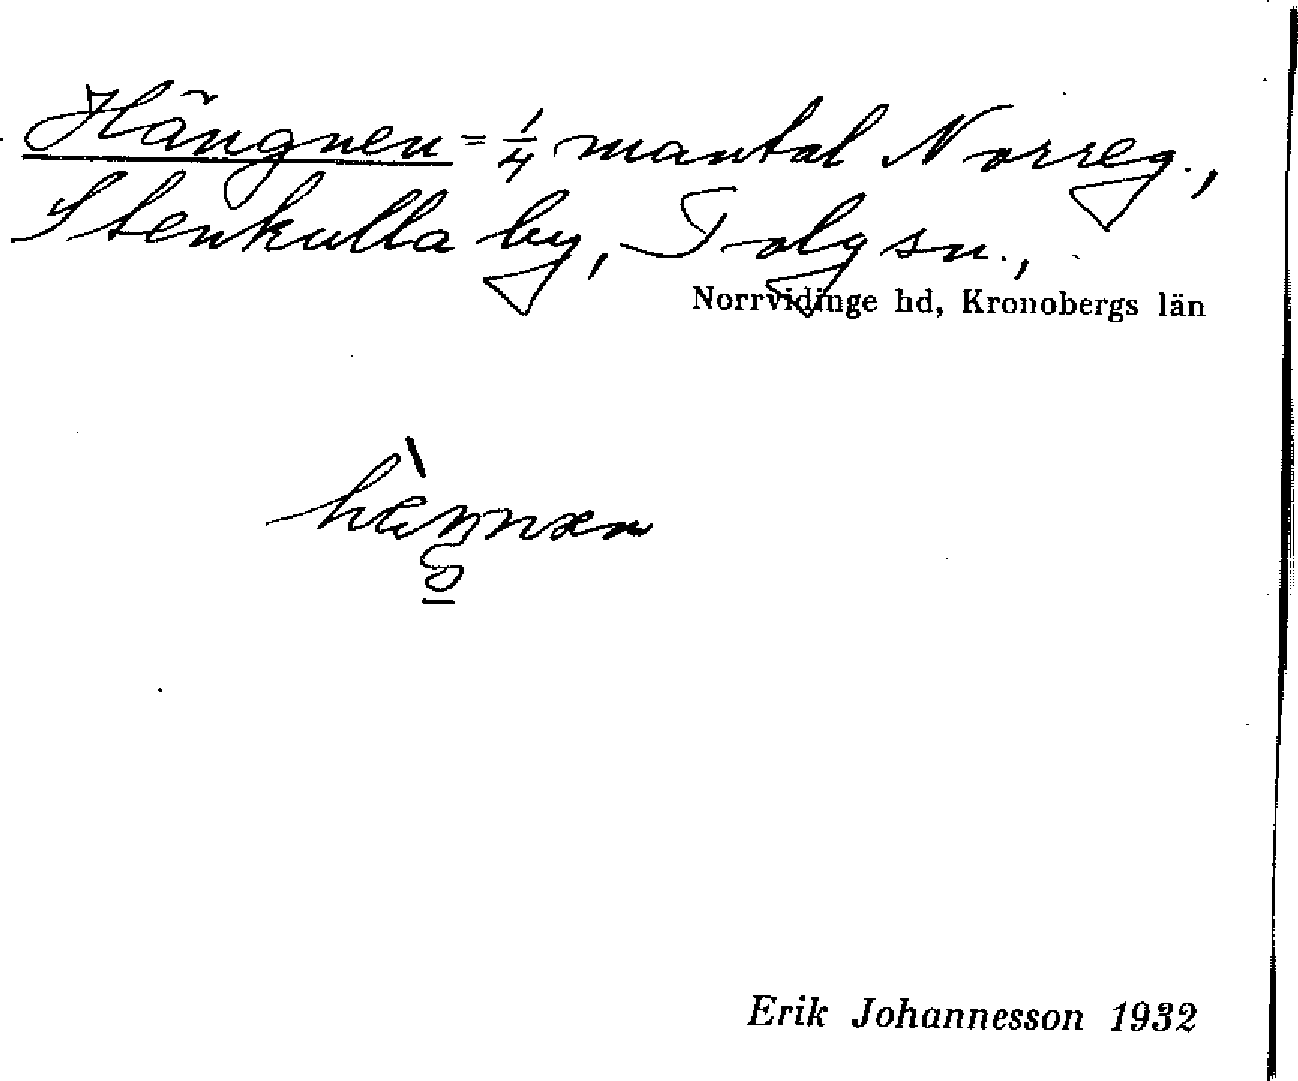 Hängnen = 1/4 mantal Norreg.,
Stenkulla by, Tolg sn.,
Norrvidinge hd, Kronobergs län
Erik Johannesson 1932